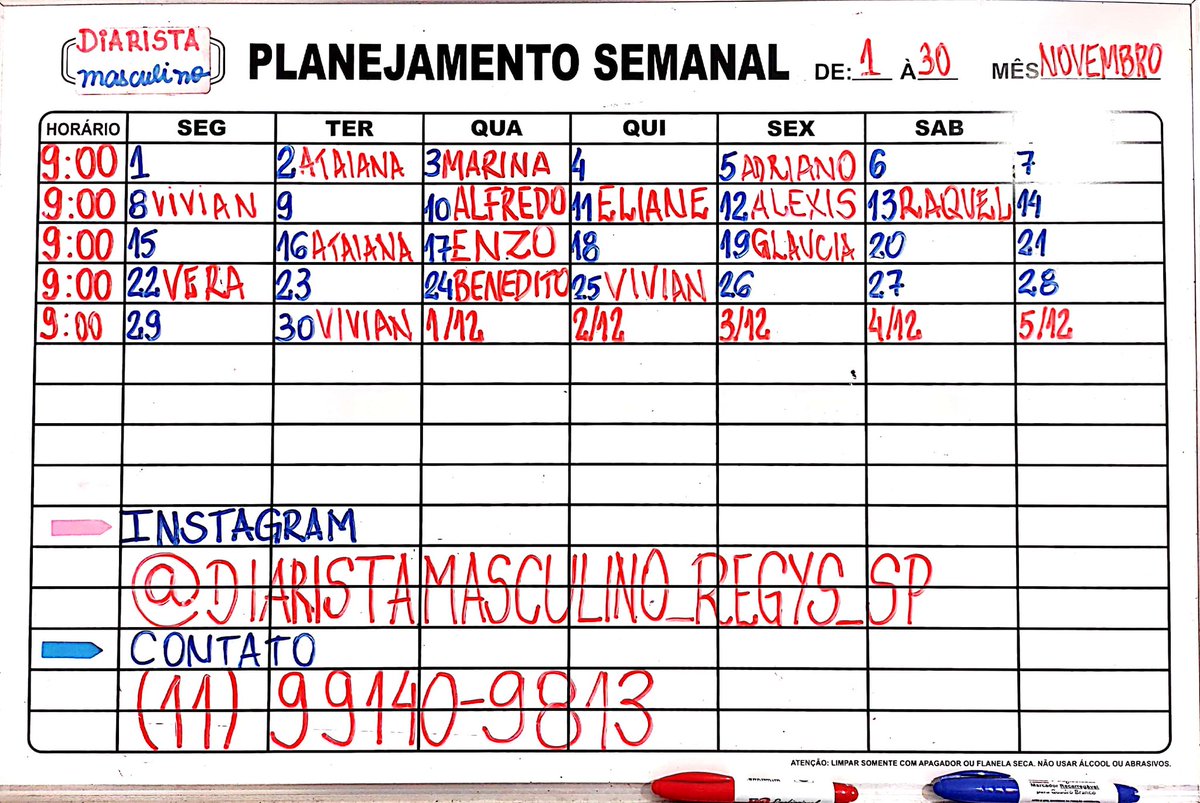 DIARISTA
masculino
PLANEJAMENTO SEMANAL DE: 1 À 30 MÊS NOVEMBRO
HORÁRIO SEG TER QUA QUI SEX SAB
9:00 1 2 ATAIANA 3 MARINA 4 5 ADRIANO 6 7
9:00 8 VIVIAN 9 10 ALFREDO 11 ELIANE 12 ALEXIS 13 RAQUEL 14
9:00 15 16 ATAIANA 17 ENZO 18 19 GLAUCIA 20 21
9:00 22 VERA 23 24 BENEDITO 25 VIVIAN 26 27 28
9:00 29 30 VIVIAN 1/12 2/12 3/12 4/12 5/12
INSTAGRAM
@DIARISTAMASCULINO_REGYS_SP
CONTATO
(11) 99140-9813
ATENÇÃO: LIMPAR SOMENTE COM APAGADOR OU FLANELA SECA. NÃO USAR ÁLCOOL OU ABRASIVOS.
Marcador Recarregável
para Quadro Branco